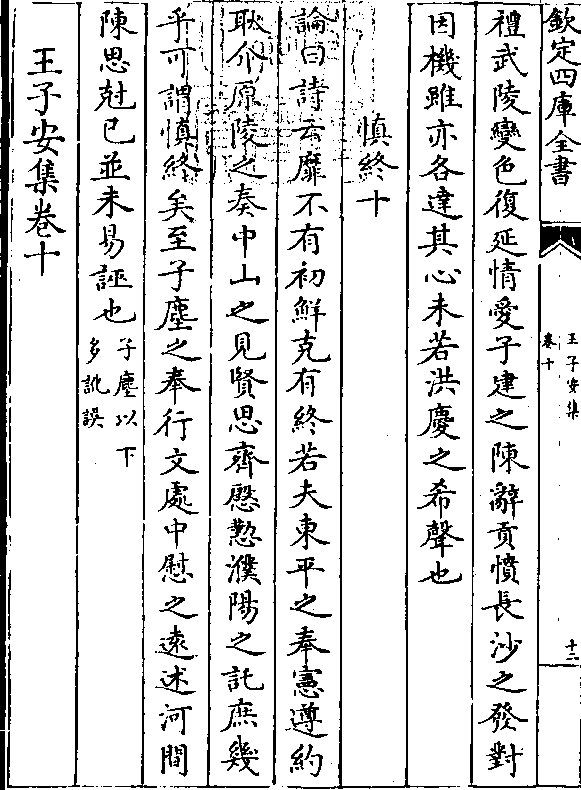 欽定四庫全書
王子安集
卷十
十二
禮武陵變色復延情愛子建之陳辭貢憤長沙之發對
因機雖亦各達其心未若洪慶之希聲也
慎終十
論曰詩云靡不有初鮮克有終若夫東平之奉憲遵約
耿介原陵之奏中山之見賢思齊慇懃濮陽之託庶幾
乎可謂慎終矣至子塵之奉行文處中慰之遠述河間
陳思尅已並未易誣也子塵以下多訛誤
王子安集卷十